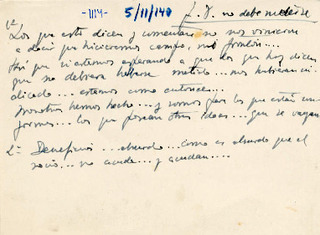 -1114- 5/11/140 F. J. no debe meterse
1ª/
Los que esto dicen y comentan no nos vinieron
a decir que hiciéramos campo, ni
Así que si estamos esperando a que los que hoy dicen
que no debiera haberse metido... nos hubieran in-
dicado... estamos como entonces...
Nosotros hemos hecho... y somos
formes... los que posean otras ideas... que se vayan
2ª- Beneficios... absurdo... como es absurdo que el
socio... no acude... y acudan....